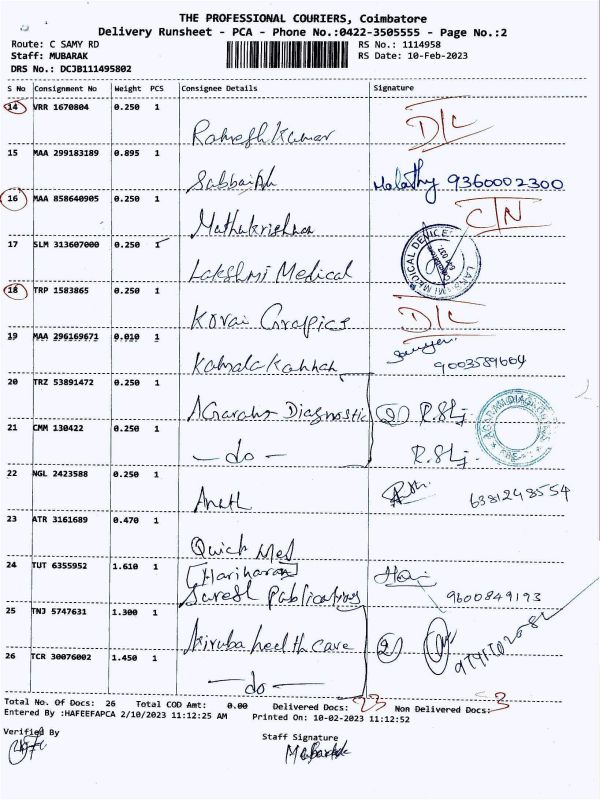 THE PROFESSIONAL COURIERS, Coimbatore
Delivery Runsheet - PCA - Phone No.:0422-3505555 - Page No.:2
Route: C SAMY RD RS No.: 1114958
Staff: MUBARAK RS Date: 10-Feb-2023
DRS No.: DCJB111495802
S No Consignment No Weight PCS Consignee Details Signature
14 VRR 1670804 0.250 1
Ramesh Kumar D/L
15 MAA 299183189 0.895 1
Sabbaiah Malathy 9360002300
16 MAA 858640905 0.250 1
Muthukrishnan C/N
17 SLM 313607000 0.250 1
Lakshmi Medical LAKSHMI MEDICAL DEVICE
18 TRP 1583865 0.250 1
Kovai Grapics D/L
19 MAA 296169671 0.010 1
Kamala Kannan 9003589604
20 TRZ 53891472 0.250 1
Agaram Diagnostic (2) R.Slj.
21 CMM 130422 0.250 1
- do - R.Slj.
22 NGL 2423588 0.250 1
Anath 6381248554
23 ATR 3161689 0.470 1
Quick Med
24 TUT 6355952 1.610 1
[Hariharan]
Suresh Publications 9600849193
25 TNJ 5747631 1.300 1
Kiruba health care (2)
26 TCR 30076002 1.450 1
- do -
Total No. Of Docs: 26 Total COD Amt: 0.00 Delivered Docs: 23 Non Delivered Docs: 3
Entered By :HAFEEFAPCA 2/10/2023 11:12:25 AM Printed On: 10-02-2023 11:12:52
Verified By
Staff Signature
Mubarak